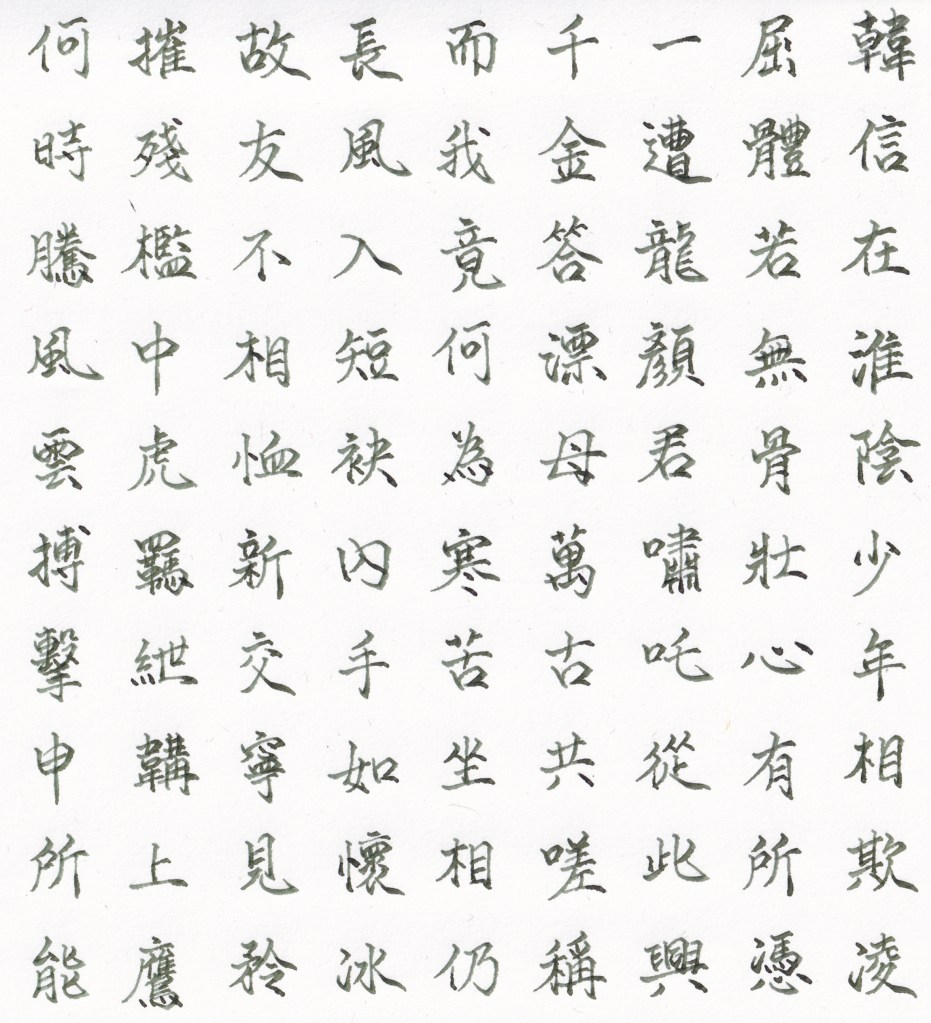 韓信在淮陰少年相欺凌
屈體若無骨壯心有所憑
一遭龍顏君嘯吒從此興
千金答漂母萬古共嗟稱
而我竟何為寒苦坐相仍
長風入短袂內手如懷冰
故友不相恤新交寧見矜
摧殘檻中虎羈紲韝上鷹
何時騰風雲搏擊申所能